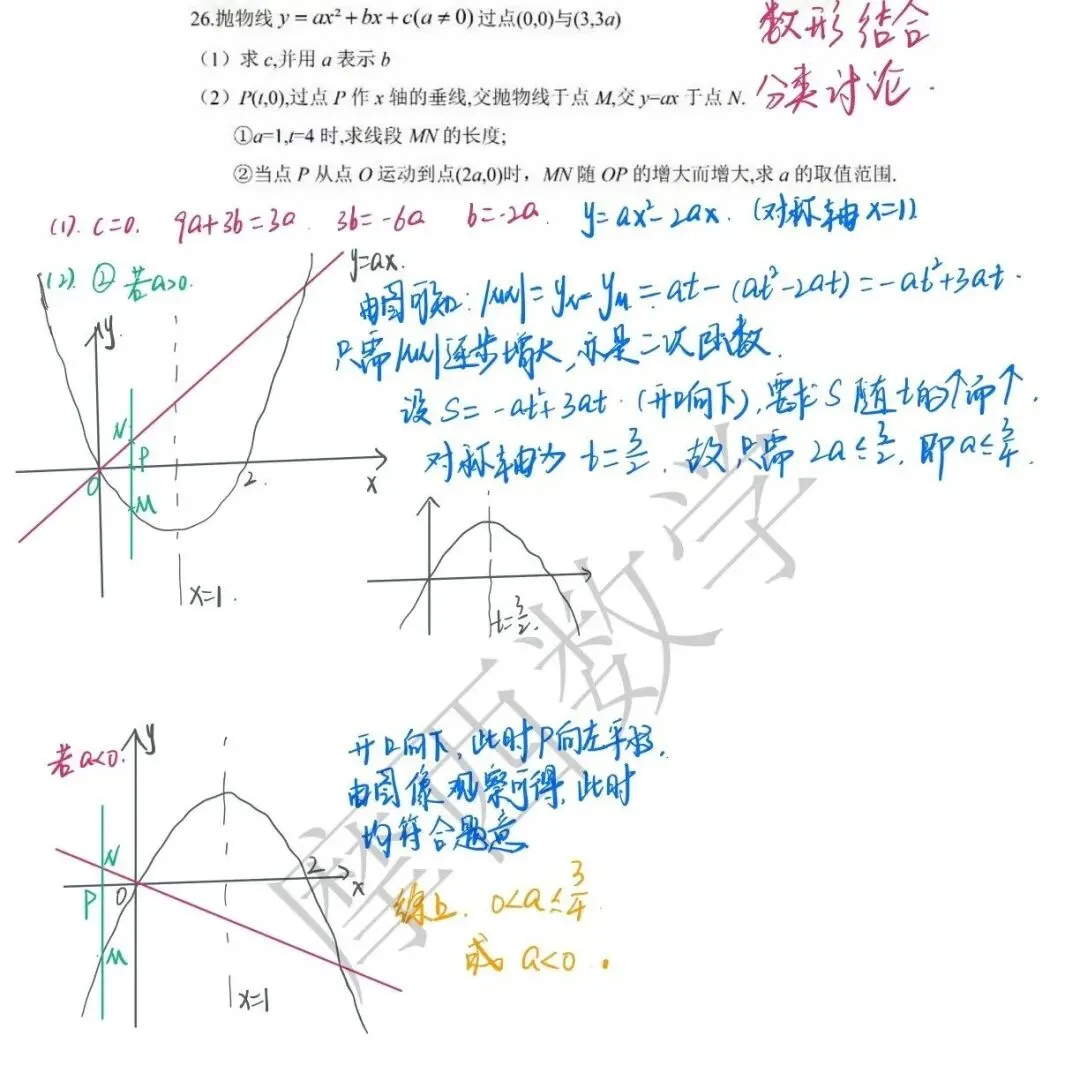 26.抛物线 y = ax² + bx + c(a ≠ 0) 过点(0,0)与(3,3a)
数形结合
分类讨论.
(1) 求 c,并用 a 表示 b
(2) P(t,0),过点 P 作 x 轴的垂线,交抛物线于点 M,交 y=ax 于点 N.
①a=1,t=4 时,求线段 MN 的长度;
②当点 P 从点 O 运动到点(2a,0)时，MN 随 OP 的增大而增大,求 a 的取值范围.
(1). c=0. 9a+3b=3a. 3b=-6a b=-2a. y=ax²-2ax. (对称轴 x=1).
(2) ② 若a>0.
y=ax.
由图可知: |MN|=y_N-y_M=at-(at²-2at)=-at²+3at.
只需|MN|逐步增大,亦是二次函数.
设 S=-at²+3at.(开口向下),要求 S 随 t的↑而↑.
对称轴为 t=3/2. 故只需 2a≤3/2. 即 a≤3/4.
y
N
P
O
2
x
M
x=1.
t=3/2.
若a<0.
y
开口向下,此时P向左平移.
由图像观察可得,此时
均符合题意
N
P
O
2
x
M
x=1
综上. 0<a≤3/4.
或 a<0.
摩西数学